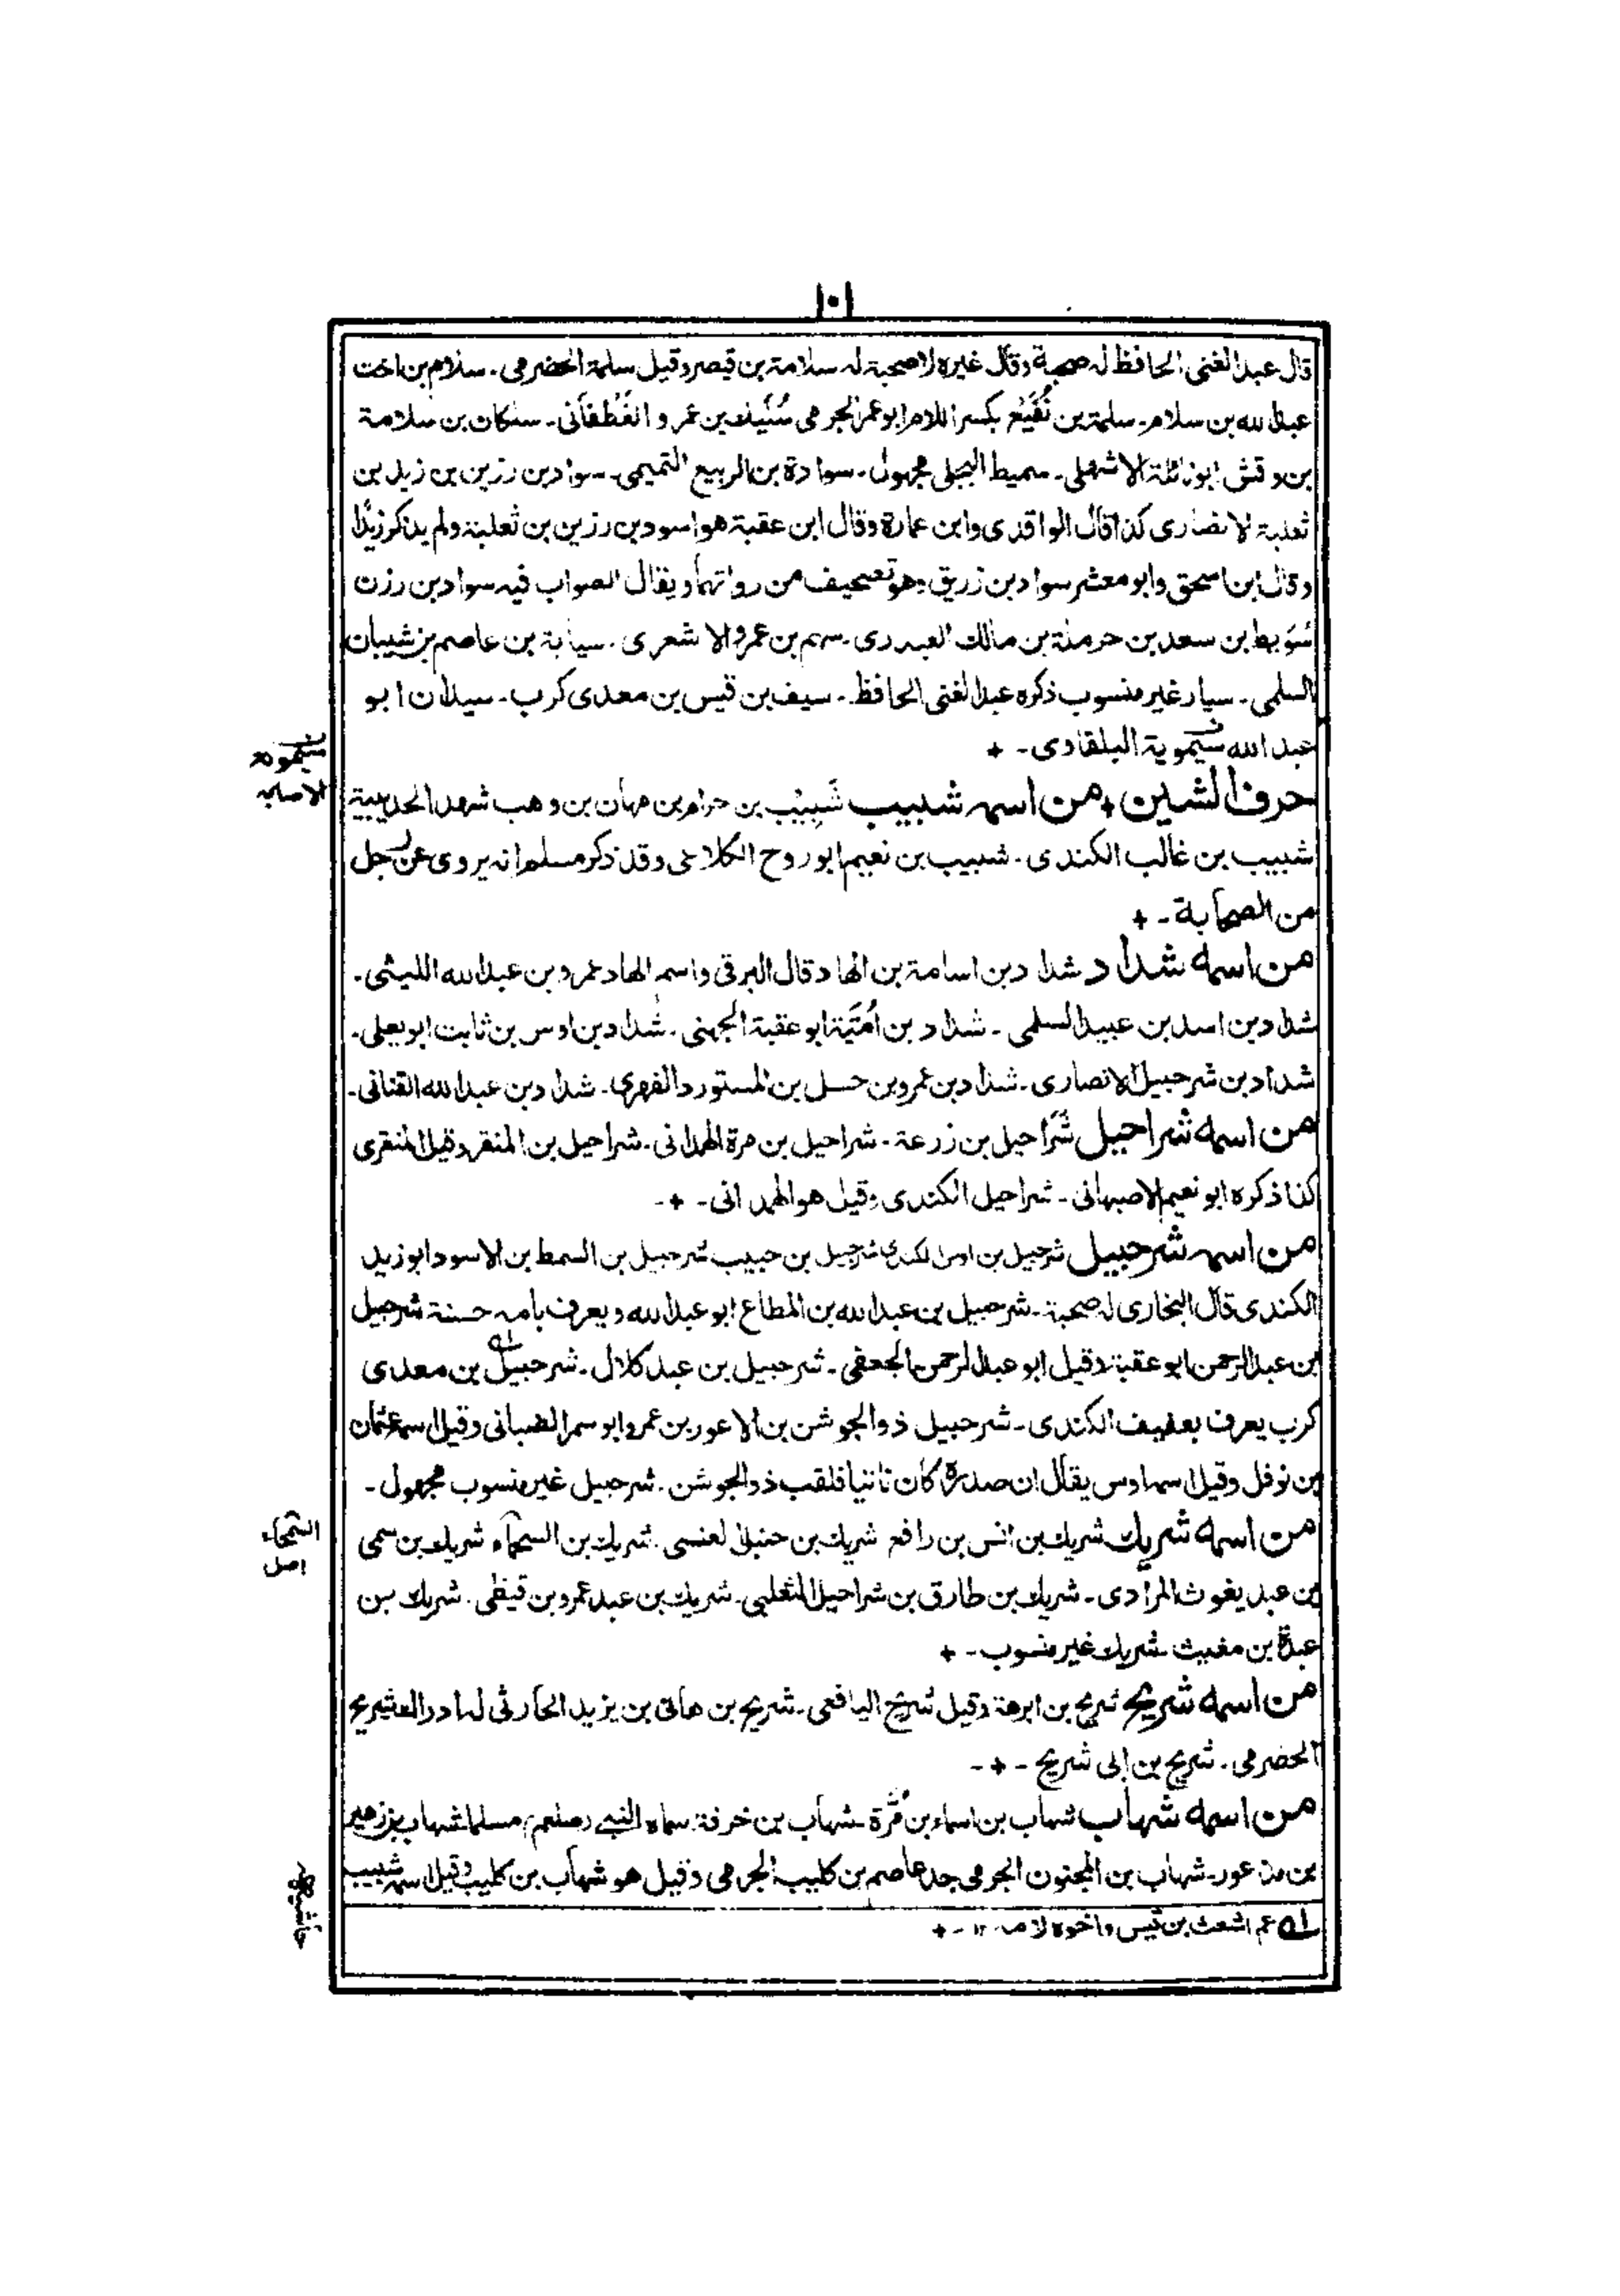 ١٠١
قال عبد الغنى الحافظ له صحبة وقال غيره لا صحبة له سلامة بن قيصر وقيل سلمة الحضرمى ـ سلام بن اخت
عبد الله بن سلام ـ سلمة بن نُفَيْع بكسر اللام ابو عمر الجرمى سُنَيْك بن عمرو الغَطَفَانى ـ سلكان بن سلامة
بن وقش ابو نائلة الاشهلى ـ سميط البجلى مجهول ـ سوادة بن الربيع التميمى ـ سواد بن رزين بن زيد بن
ثعلبة الانصارى كذا قال الواقدى وابن عمارة وقال ابن عقبة هو اسود بن رزين بن ثعلبة ولم يذكر زيدًا
وقال ابن اسحق وابو معشر سواد بن زريق وهو تصحيف من رواتهما ويقال الصواب فيه سواد بن رزن
سُوَيبط بن سعد بن حرملة بن مالك العبدرى ـ سهم بن عمرو الاشعرى ـ سيابة بن عاصم بن شيبان
السلمى ـ سيار غير منسوب ذكره عبد الغنى الحافظ ـ سيف بن قيس بن معدى كرب ـ سيدان ابو
عبد الله سَيمُوية البلقادى ـ +
حرف الشين + من اسمه شبيب شَبِيْب بن حرام بن مهان بن وهب شهد الحديبية
شبيب بن غالب الكندى ـ شبيب بن نعيم ابو روح الكلاعى وقد ذكر مسلم انه يروى عن رجل
من الصحابة ـ +
من اسمه شداد شداد بن اسامة بن الهاد قال البرقى واسم الهاد عمرو بن عبد الله الليثى ـ
شداد بن اسد بن عبيد السلمى ـ شداد بن اُمَيَّة ابو عقبة الجهنى ـ شداد بن اوس بن ثابت ابو يعلى ـ
شداد بن شرحبيل الانصارى ـ شداد بن عمرو بن حسل بن المستورد الفهرى ـ شداد بن عبد الله القنانى ـ
من اسمه شراحيل شَرَاحيل بن زرعة ـ شراحيل بن مرة الهمدانى ـ شراحيل بن المنقر وقيل المنقرى
كذا ذكره ابو نعيم الاصبهانى ـ شراحيل الكندى وقيل هو الهمدانى ـ + ـ
من اسمه شرحبيل شرحبيل بن اوس الكندى شرحبيل بن حبيب شرحبيل بن السمط بن الاسود ابو زيد
الكندى قال البخارى له صحبة ـ شرحبيل بن عبد الله بن المطاع ابو عبد الله ويعرف بامه حسنة شرحبيل
بن عبد الرحمن ابو عقبة وقيل ابو عبد الرحمن الجعفى ـ شرحبيل بن عبد كلال ـ شرحبيل بن معدى
كرب يعرف بعفيف الكندى ـ شرحبيل ذو الجوشن بن الاعور بن عمرو ابو سمر الضبانى وقيل اسمه عثمان
بن نوفل وقيل اسمه اوس يقال ان صدره كان ناتيا فلقب ذو الجوشن ـ شرحبيل غير منسوب مجهول ـ
من اسمه شريك شريك بن انس بن رافع شريك بن حنبل العنسى ـ شريك بن السحماء شريك بن سمى
بن عبد يغوث المرادى ـ شريك بن طارق بن شراحيل الثعلبى ـ شريك بن عبد عمرو بن قيظى ـ شريك بن
عبدة بن مغيث ـ شريك غير منسوب ـ +
من اسمه شريح شريح بن ابرهة وقيل شريح اليافعى ـ شريح بن هانى بن يزيد الحارثى له ادراك شريح
الحضرمى ـ شريح بن ابى شريح ـ + ـ
من اسمه شهاب شهاب بن اسماء بن مُرَّة ـ شهاب بن خرفة سماه النبى صلعم مسلما شهاب بن زهير
بن مذعور ـ شهاب بن المجنون الجرمى جد عاصم بن كليب الجرمى وقيل هو شهاب بن كليب وقيل اسمه شبيب
له عم اشعث بن قيس واخوه لامه ـ ١٢ ـ +
السحماء
اصل